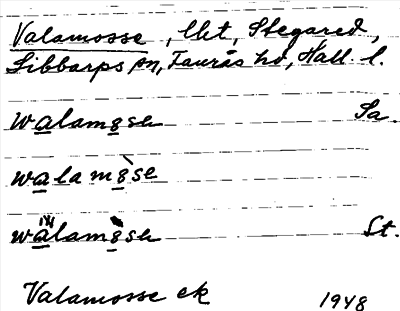 Valamosse, lht, Stegared,
Sibbarps sn, Faurås hd, Hall. l.
walamose Sa.
walamose
walamose St.
Valamosse ek 1948